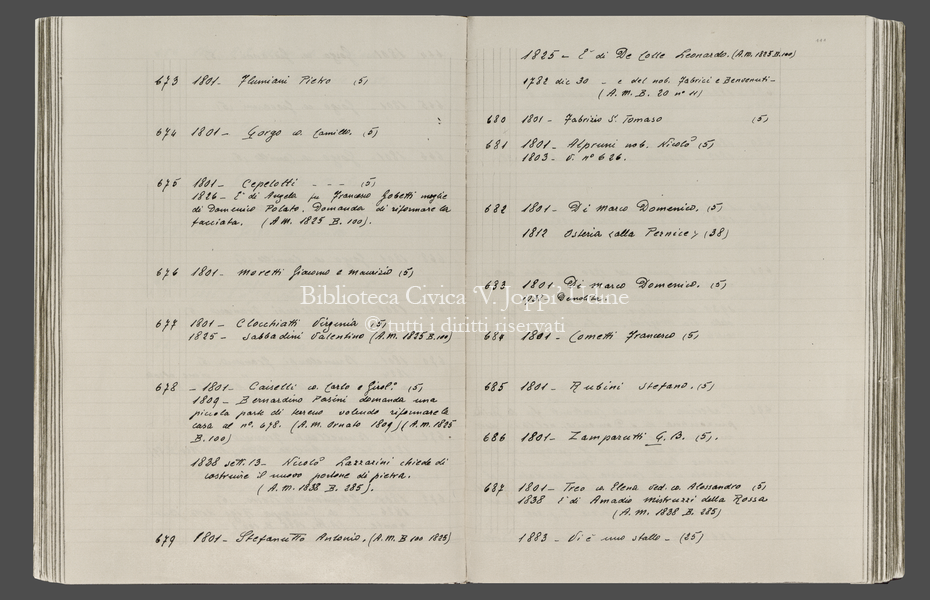 673 1801 - Flumiani Pietro (5)
674 1801 - Gorgo co. Camillo. (5)
675 1801 - Cepelotti - - - (5)
1826 - E' di Angela fu Francesco Gobetti moglie
di Domenico Polato. Domanda di riformare la
facciata. (A.M. 1825 B. 100).
676 1801 - Moretti Giacomo e Maurizio (5)
677 1801 - Clocchiatti Virginia (5)
1825 - Sabbadini Valentino (A.M. 1825 B. 100)
678 - 1801 - Caiselli co. Carlo e Girol.º (5)
1809 - Bernardino Pasini domanda una
piccola parte di terreno volendo riformare la
casa al nº. 678. (A.M. Ornato 1809) (A.M. 1825
B. 100)
1838 sett. 13 - Nicolò Lazzarini chiede di
costruire il nuovo portone di pietra.
(A.M. 1838 B. 285).
679 1801 - Stefanutto Antonio. (A.M. B 100 1825)
1825 - E' di De Colle Leonardo. (A.M. 1825 B. 100)
1782 dic 30 - e del nob. Fabrici e Benvenuti -
(A.M. B. 20 nº 11)
680 1801 - Fabrizio S. Tomaso (5)
681 1801 - Alpruni nob. Nicolò (5)
1803 - V. nº 626.
682 1801 - Di Marco Domenico. (5)
1812 Osteria <alla Pernice> (38)
683 1801 Di Marco Domenico. (5)
684 1801 - Cometti Francesco (5)
685 1801 - Rubini Stefano. (5)
686 1801 - Zamparutti G. B. (5).
687 1801 - Treo co. Elena ved. co. Alessandro (5)
1838 E' di Amadio Mistruzzi della Rossa
(A.M. 1838 B. 285)
1883 - Vi è uno stallo - (25)
Biblioteca Civica 'V. Joppi' Udine
© tutti i diritti riservati